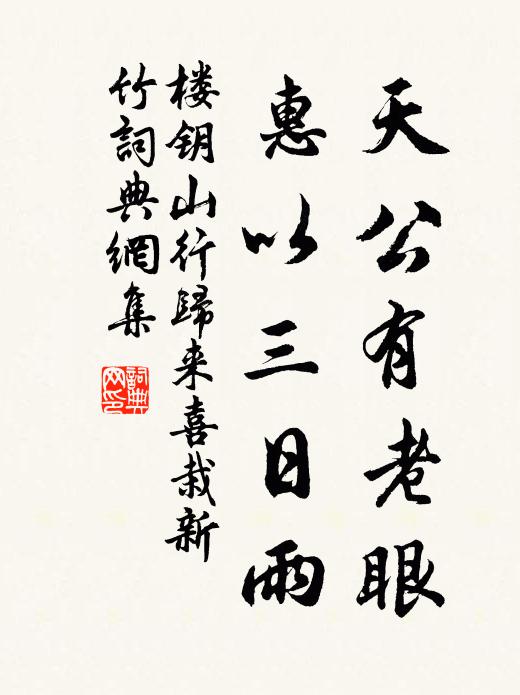 天公有老眼
惠以三日雨
楼钥山行歸来喜栽新
竹詞典網集
詞典网印